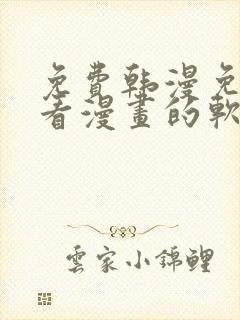 免費韩漫免
看漫畫的軟
雲家小錦鯉